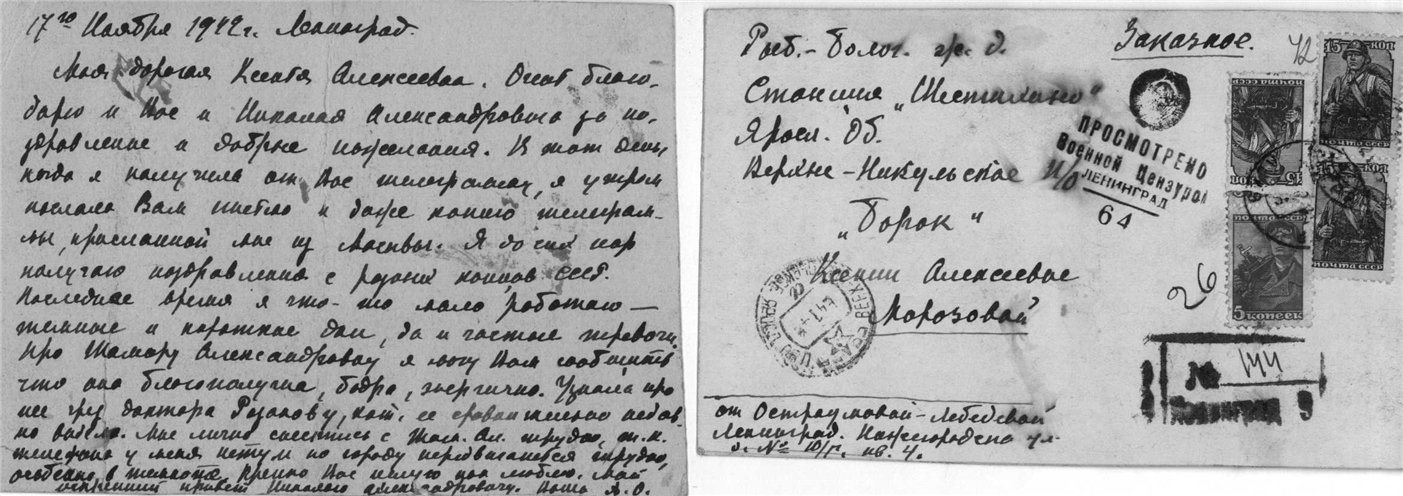 17го Ноября 1942г. Ленинград.
Моя дорогая Ксения Алексеевна. Очень благо-
дарю и Вас и Николая Александровича за по-
здравление и добрые пожелания. В тот день
когда я получила от Вас телеграмму, я утром
послала Вам письмо и даже копию телеграм-
мы, присланной мне из Москвы. Я до сих пор
получаю поздравления с разных концов СССР.
Последнее время я что-то мало работаю —
темные и короткие дни, да и частые тревоги.
Про Тамару Александровну я могу Вам сообщить
что она благополучна, бодра, энергична. Узнала про
нее чрез доктора Русакову, кот. ее сравнительно недав-
но видела. Мне лично снестись с Там. Ал. трудно, т.к.
телефона у меня нет и по городу передвигаться трудно,
особенно в темноте. Крепко Вас целую как люблю. Мой
искренний привет Николаю Александровичу. Ваша А. О.
Рыб.-Болог. ж. д.
Станция „Шестихино"
Яросл. Об.
Верхне-Никульское п/о
„Борок"
Ксении Алексеевне
Морозовой
от Остроумовой-Лебедевой
Ленинград. Нижегородская ул.
д. № 10/г. кв. 4.
Заказное.
42
ПРОСМОТРЕНО
Военной Цензурой
ЛЕНИНГРАД
64
26
15 КОП
ПОЧТА СССР
15 КОП
ПОЧТА СССР
ПОЧТА СССР
ПОЧТА СССР
5 КОПЕЕК
№ 144
Ленинград 9